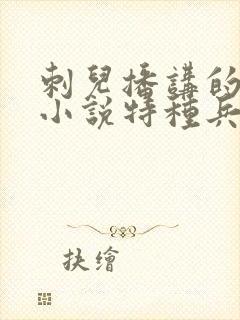 刺兒播講的
小說特種兵
抉繪